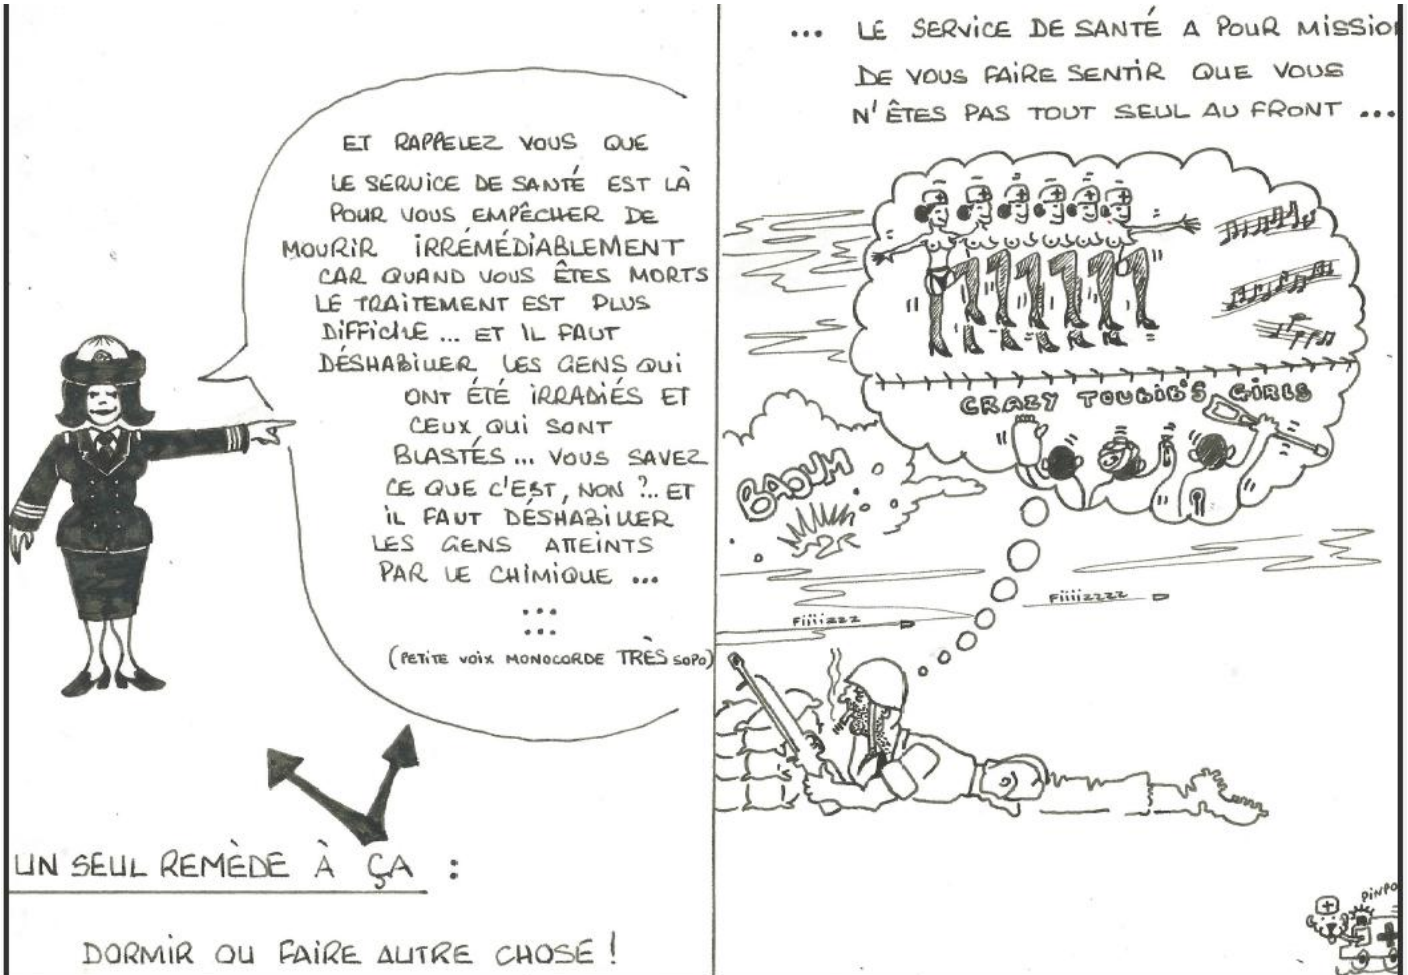 ET RAPPELEZ VOUS QUE
LE SERVICE DE SANTÉ EST LÀ
POUR VOUS EMPÊCHER DE
MOURIR IRRÉMÉDIABLEMENT
CAR QUAND VOUS ÊTES MORTS
LE TRAITEMENT EST PLUS
DIFFICILE ... ET IL FAUT
DÉSHABILLER LES GENS QUI
ONT ÉTÉ IRRADIÉS ET
CEUX QUI SONT
BLASTÉS ... VOUS SAVEZ
CE QUE C'EST, NON ?.. ET
IL FAUT DÉSHABILLER
LES GENS ATTEINTS
PAR LE CHIMIQUE ...
...
...
(PETITE VOIX MONOCORDE TRÈS SOPO)
UN SEUL REMÈDE À ÇA :
DORMIR OU FAIRE AUTRE CHOSE !
... LE SERVICE DE SANTÉ A POUR MISSION
DE VOUS FAIRE SENTIR QUE VOUS
N'ÊTES PAS TOUT SEUL AU FRONT ...
CRAZY TOUBIB'S GIRLS
BAOUM
Fiiiizzzz
Fiiiizzz
PINPO